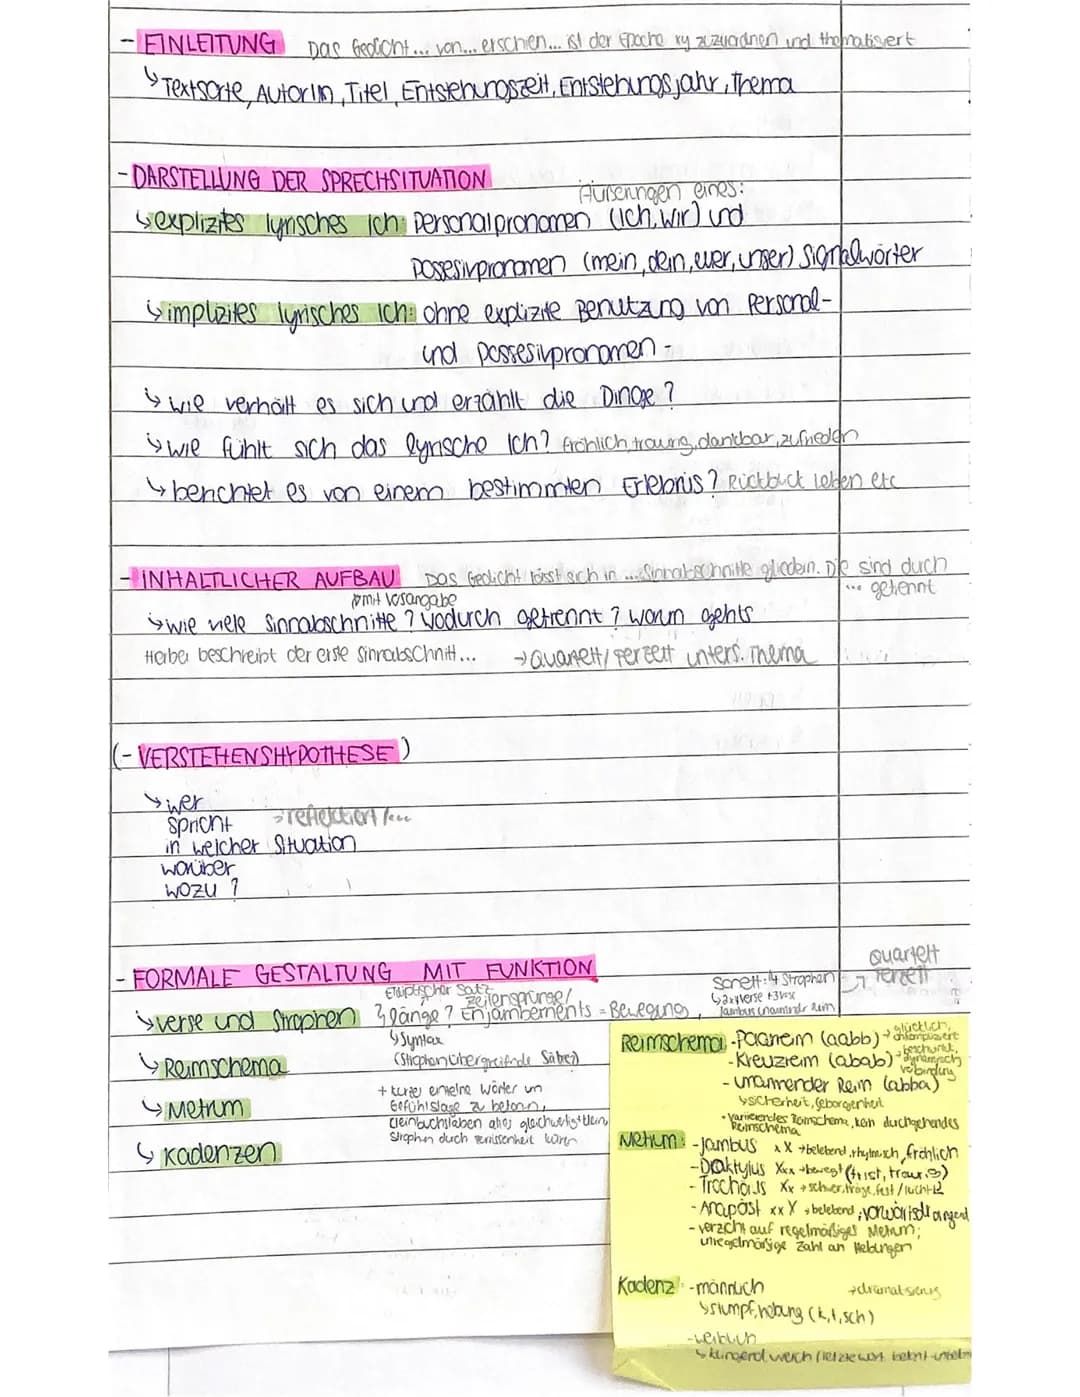 - EINLEITUNG Das Gedicht... von... erschien... ist der Epoche xy zuzuordnen und thematisiert
↳ Textsorte, AutorIn, Titel, Entstehungszeit, Entstehungsjahr, Thema
- DARSTELLUNG DER SPRECHSITUATION
Äußerungen eines:
↳ explizites lyrisches Ich: Personalpronomen (ich, wir) und
Possesivpronomen (mein, dein, euer, unser) Signalwörter
↳ implizites lyrisches Ich: ohne explizite Benutzung von Personal-
und possesivpronomen -
↳ wie verhält es sich und erzählt die Dinge?
↳ wie fühlt sich das lyrische Ich? fröhlich, traurig, dankbar, zufrieden
↳ berichtet es von einem bestimmten Erlebnis? Rückblick Leben etc
- INHALTLICHER AUFBAU Das Gedicht lässt sich in ... Sinnabschnitte gliedern. Die sind durch
... getrennt
mit Versangabe
↳ wie viele Sinnabschnitte? Wodurch getrennt? worum gehts
Hierbei beschreibt der erste Sinnabschnitt... → Quartett/Terzett unters. Thema
(- VERSTEHENSHYPOTHESE)
↳ wer
spricht → reflektiert / ...
in welcher Situation
worüber
wozu?
- FORMALE GESTALTUNG MIT FUNKTION
Quartett
Sonett: 4 Strophen → Terzett
Elliptischer Satz
Zeilensprünge/
↳ 2x4Verse + 3
↳ verse und Strophen länge? Enjambements = Bewegung,
↳ Syntax
↳ Reimschema (Strophenübergreifende Sätze)
+ kurze einzelne Wörter um
↳ Metrum Gefühlslage zu betonen,
kleinbuchstaben alles gleichwertig
↳ Kadenzen Strophen durch zerrissenheit
Reimschema: - Paarreim (aabb) → glücklich,
- Kreuzreim (abab) → beschwingt, dynamisch
verbindung
- umarmender Reim (abba)
↳ sicherheit, geborgenheit
- variierendes Reimschema, kein durchgehendes
Reimschema
Metrum: - Jambus xX → belebend, rhytmisch, fröhlich
- Daktylus Xxx → bewegt (trist, traurig)
- Trochäus Xx → schwer, träge, fest /
- Anapäst xxX → belebend, vorwärtsdrängend
- verzicht auf regelmäßiges Metrum;
unregelmäßige Zahl an Hebungen
Kadenz: - männlich → dramatisierung
↳ stumpf, hebung (k,t,sch)
- weiblich
↳ klingend, weich (letzte wort betont-unbetont